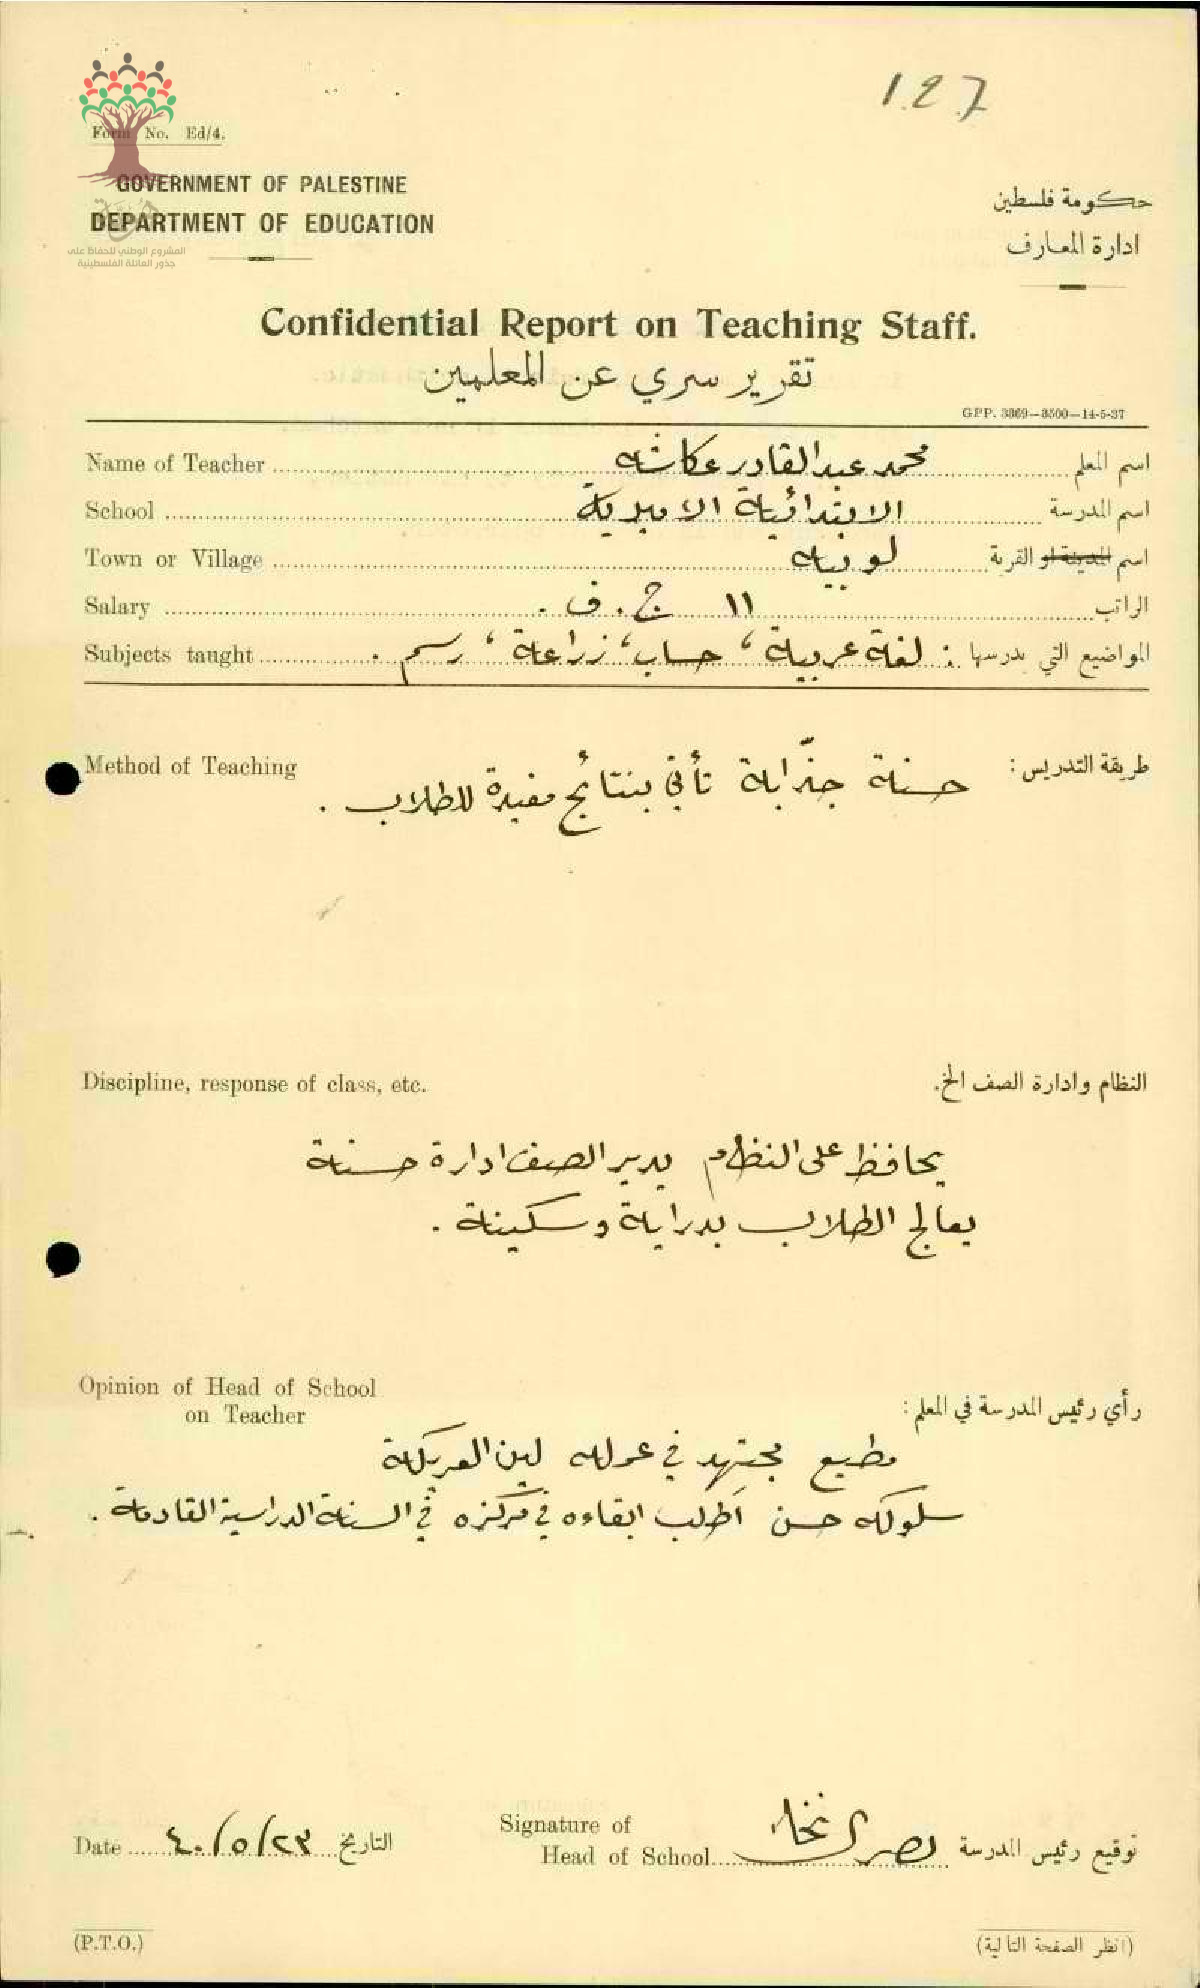 127
Form No. Ed/4.
GOVERNMENT OF PALESTINE
DEPARTMENT OF EDUCATION
حكومة فلسطين
ادارة المعارف
هوية
المشروع الوطني للحفاظ على
جذور العائلة الفلسطينية
Confidential Report on Teaching Staff.
تقرير سري عن المعلمين
GPP. 3869—3500—14-5-37
Name of Teacher محمد عبد القادر عكاشه اسم المعلم
School الابتدائية الاميرية اسم المدرسة
Town or Village لوبيه اسم المدينة او القرية
Salary ١١ ج. ف. الراتب
Subjects taught المواضيع التي يدرسها : لغة عربية، حساب، زراعة، رسم .
Method of Teaching طريقة التدريس:
حسنة جذّابة تأتي بنتائج مفيدة للطلاب .
Discipline, response of class, etc. النظام وادارة الصف الخ.
يحافظ على النظام يدير الصف ادارة حسنة
يعالج الطلاب بدراية وسكينة .
Opinion of Head of School
on Teacher
رأي رئيس المدرسة في المعلم:
مطيع مجتهد في عمله لين العريكة
سلوكه حسن اطلب ابقاءه في مركزه في السنة الدراسية القادمة .
Date ٤٠/٥/٢٣ التاريخ
Signature of
Head of School توقيع رئيس المدرسة
(P.T.O.) (انظر الصفحة التالية)